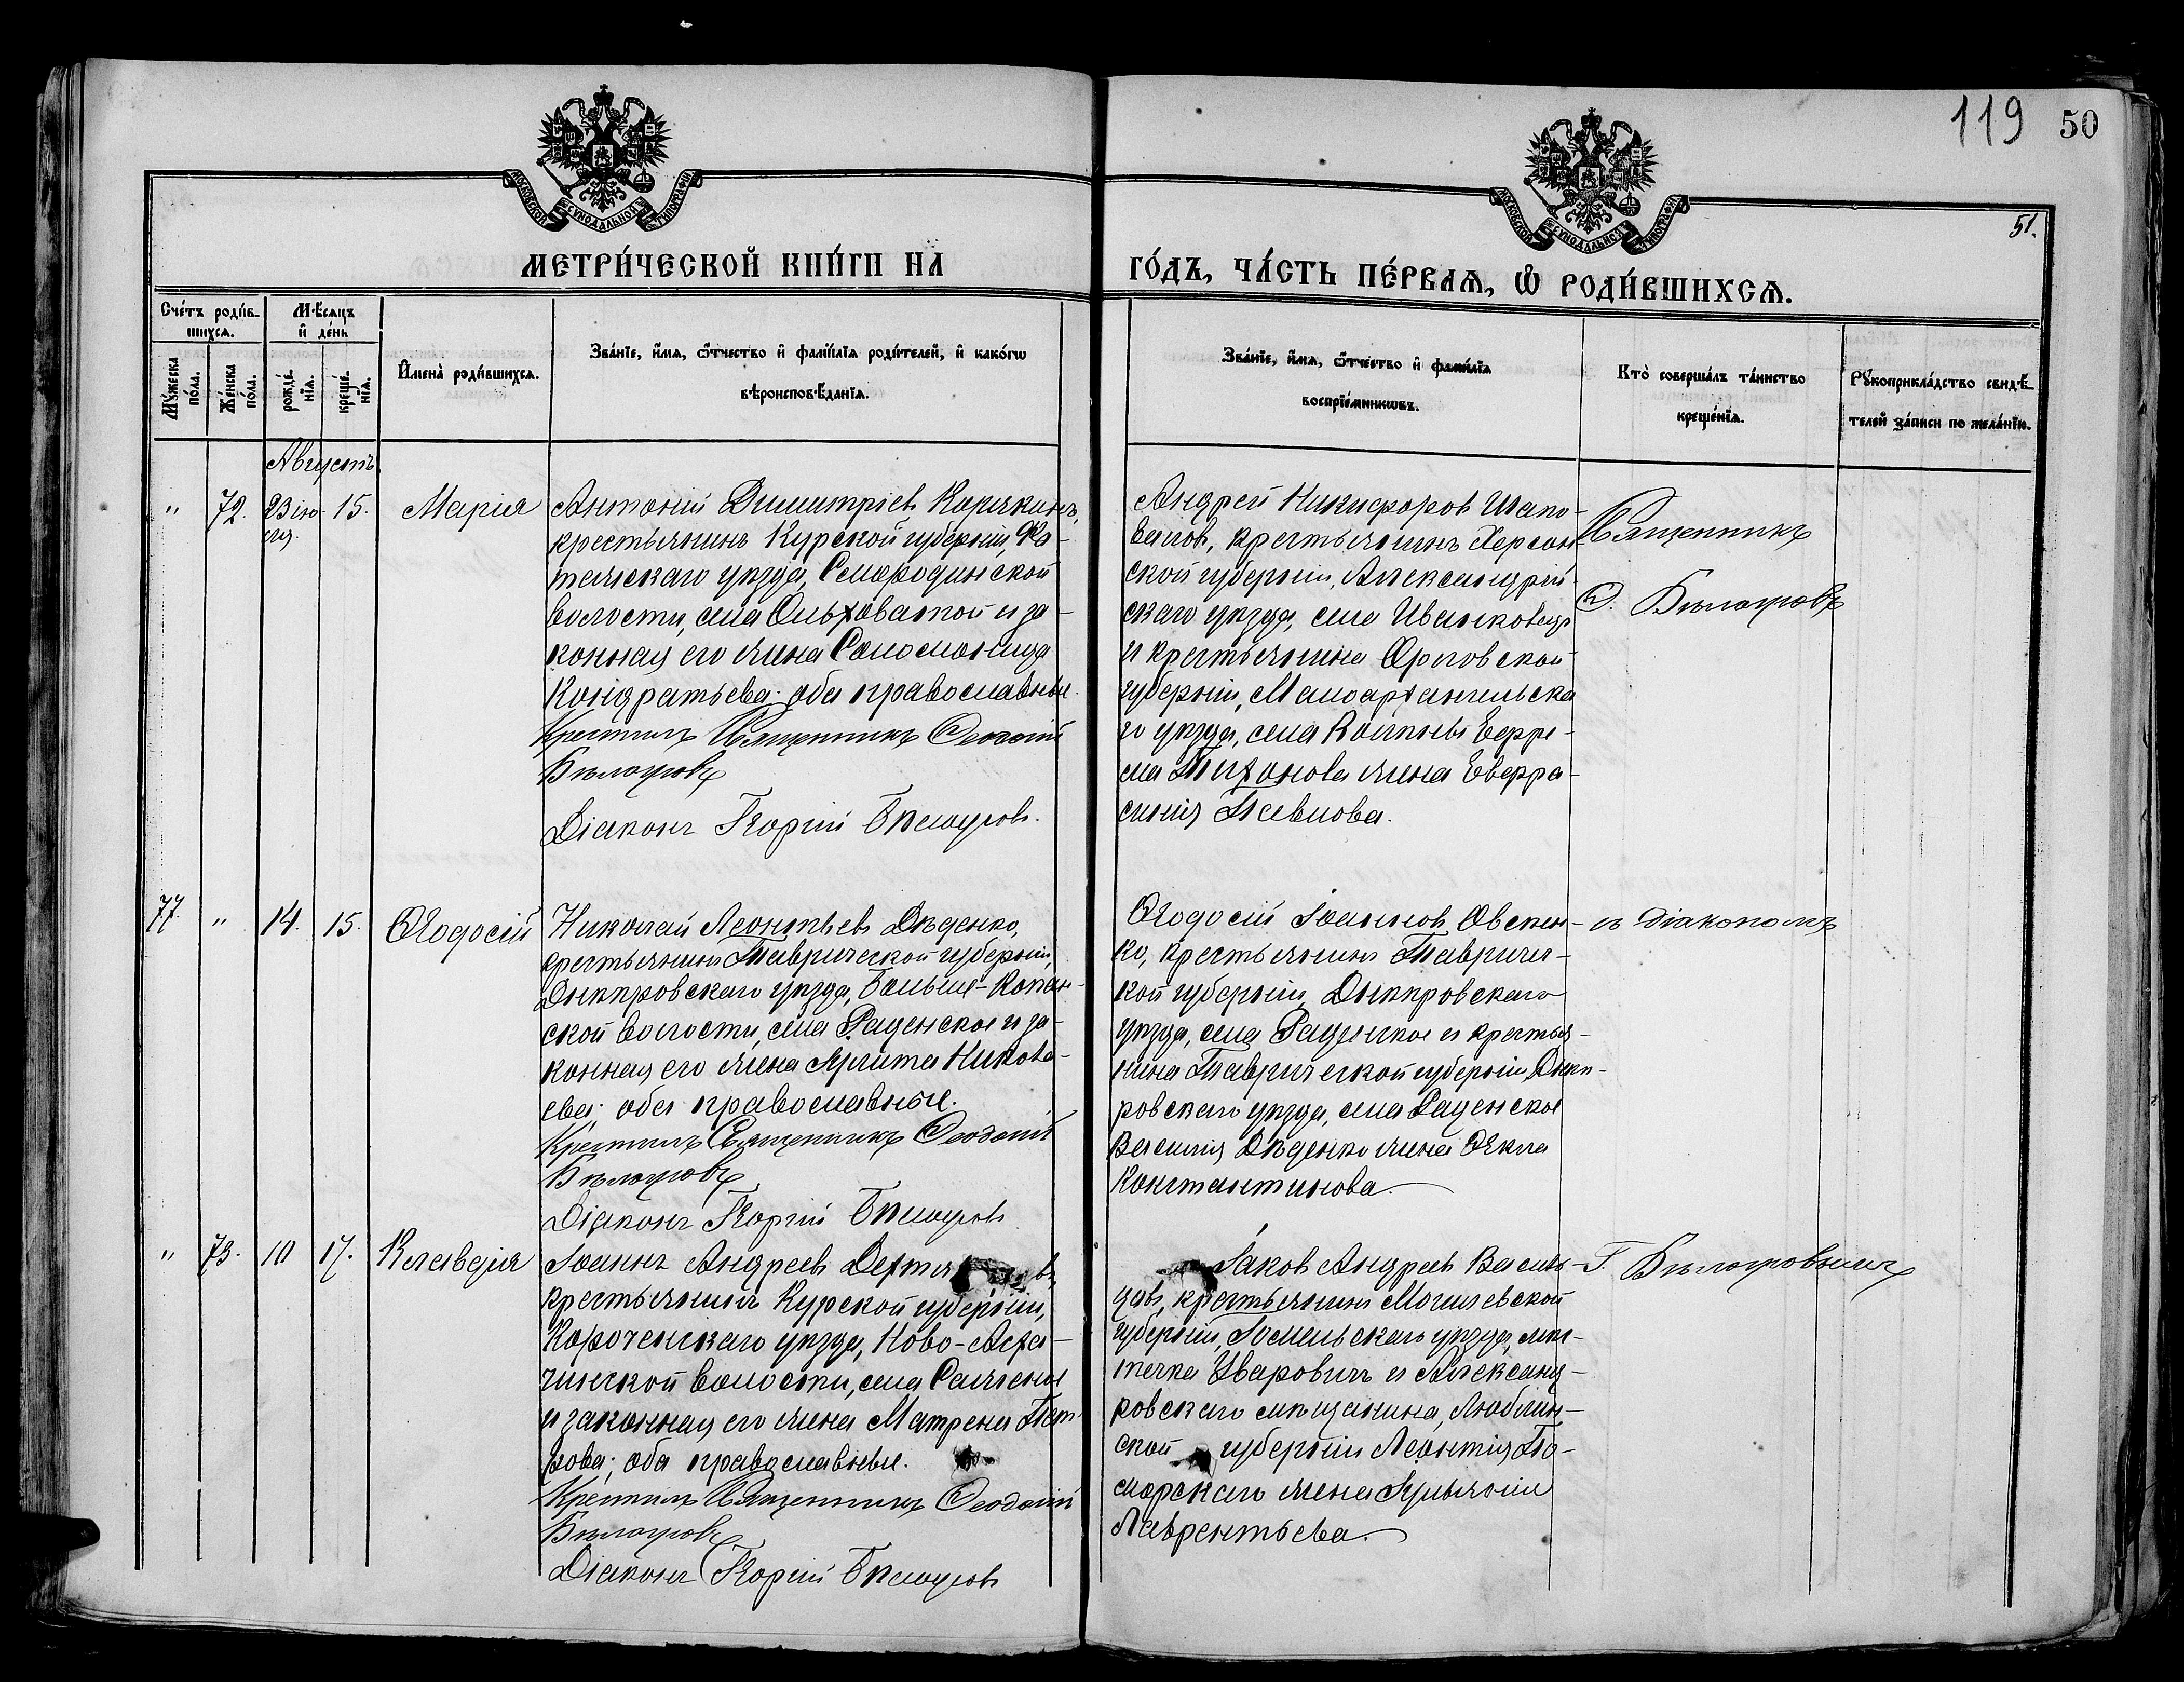 119 50
51.
МОСКОВСКОЙ СѴНОДАЛЬНОЙ ТИПОГРАФІИ
МОСКОВСКОЙ СѴНОДАЛЬНОЙ ТИПОГРАФІИ
МЕТРИ́ЧЕСКОЙ КНИ́ГИ НА
ГО́ДЪ, ЧА́СТЬ ПЕ́РВАѦ, Ѡ РОДИ́ВШИХСѦ.
Сче́тъ роди́в-
шихся.
Мѣ́сяцъ
и де́нь
Мꙋ́жеска
по́ла.
Же́нска
по́ла.
рожде́-
нїя.
креще́-
нїя.
Имена̀ роди́вшихся.
Зва́нїе, и́мя, ѻ҆́тчество и фамі́лїя роди́телей, и како́гѡ
вѣроисповѣ́данїя.
Зва́нїе, и́мя, ѻ҆́тчество и фамі́лїя
воспріе́мникѡвъ.
Кто̀ соверша́лъ та́инство
креще́нїя.
Рꙋкоприкла́дство свидѣ́-
телей за́писи по жела́нїю.
Августъ
" 72. 23 ію- 15. Марія
ля.
Антоній Димитріев Корякинъ,
крестьянинъ Курской губерніи, Ко-
тельскаго уѣзда, Смородинской
волости, села Ольховатой и за-
конная его жена Соломонида
Кондратьева; оба православные.
Крестилъ Священникъ Ѳеодосій
Бѣлоусовъ
Діаконъ Георгій Бѣлоусовъ.
Андрей Никифоров Шапо-
валов, крестьянинъ Херсон-
ской губерніи, Александрій-
скаго уѣзда, села Иванковцы
и крестьянина Орловской
губерніи, Малоархангельска-
го уѣзда, села Ефре-
ма Тихонова жена Евфра-
синія Павлова.
Священникъ
Ѳ. Бѣлоусовъ
77. " 14. 15. Ѳеодосій
Николай Леонтьевъ Дѣденко,
крестьянинъ Таврической губерніи,
Днѣпровскаго уѣзда, Больше-Копан-
ской волости, села Раденское и за-
конная его жена Улита Никола-
ева; оба православные.
Крестилъ Священникъ Ѳеодосій
Бѣлоусовъ
Діаконъ Георгій Бѣлоусовъ
Ѳеодосій Іоаннов Овсіен-
ко, крестьянинъ Тавричес-
кой губерніи, Днѣпровскаго
уѣзда, села Раденское и крестья-
нина Таврической губерніи, Днѣп-
ровскаго уѣзда, села Раденское
Василія Дѣденко жена Ѳекла
Константинова.
съ діакономъ
" 73. 10 17. Клавдія
Іоаннъ Андреевъ Дехтя
крестьянинъ Курской губерніи,
Короченскаго уѣзда, Ново-
волости, села
и законная его жена Матрена Пет-
рова; оба православные.
Крестилъ Священникъ Ѳеодосій
Бѣлоусовъ
Діаконъ Георгій Бѣлоусовъ
Іаков Андреевъ
крестьянинъ Могилевской
губерніи, Гомельскаго уѣзда, мѣс-
течка Уваровичъ и Александ-
ровскаго мѣщанина, Люблин-
ской губерніи Леонтія По-
морскаго жена Іуліанія
Лаврентьева.
Г. Бѣлоусовымъ